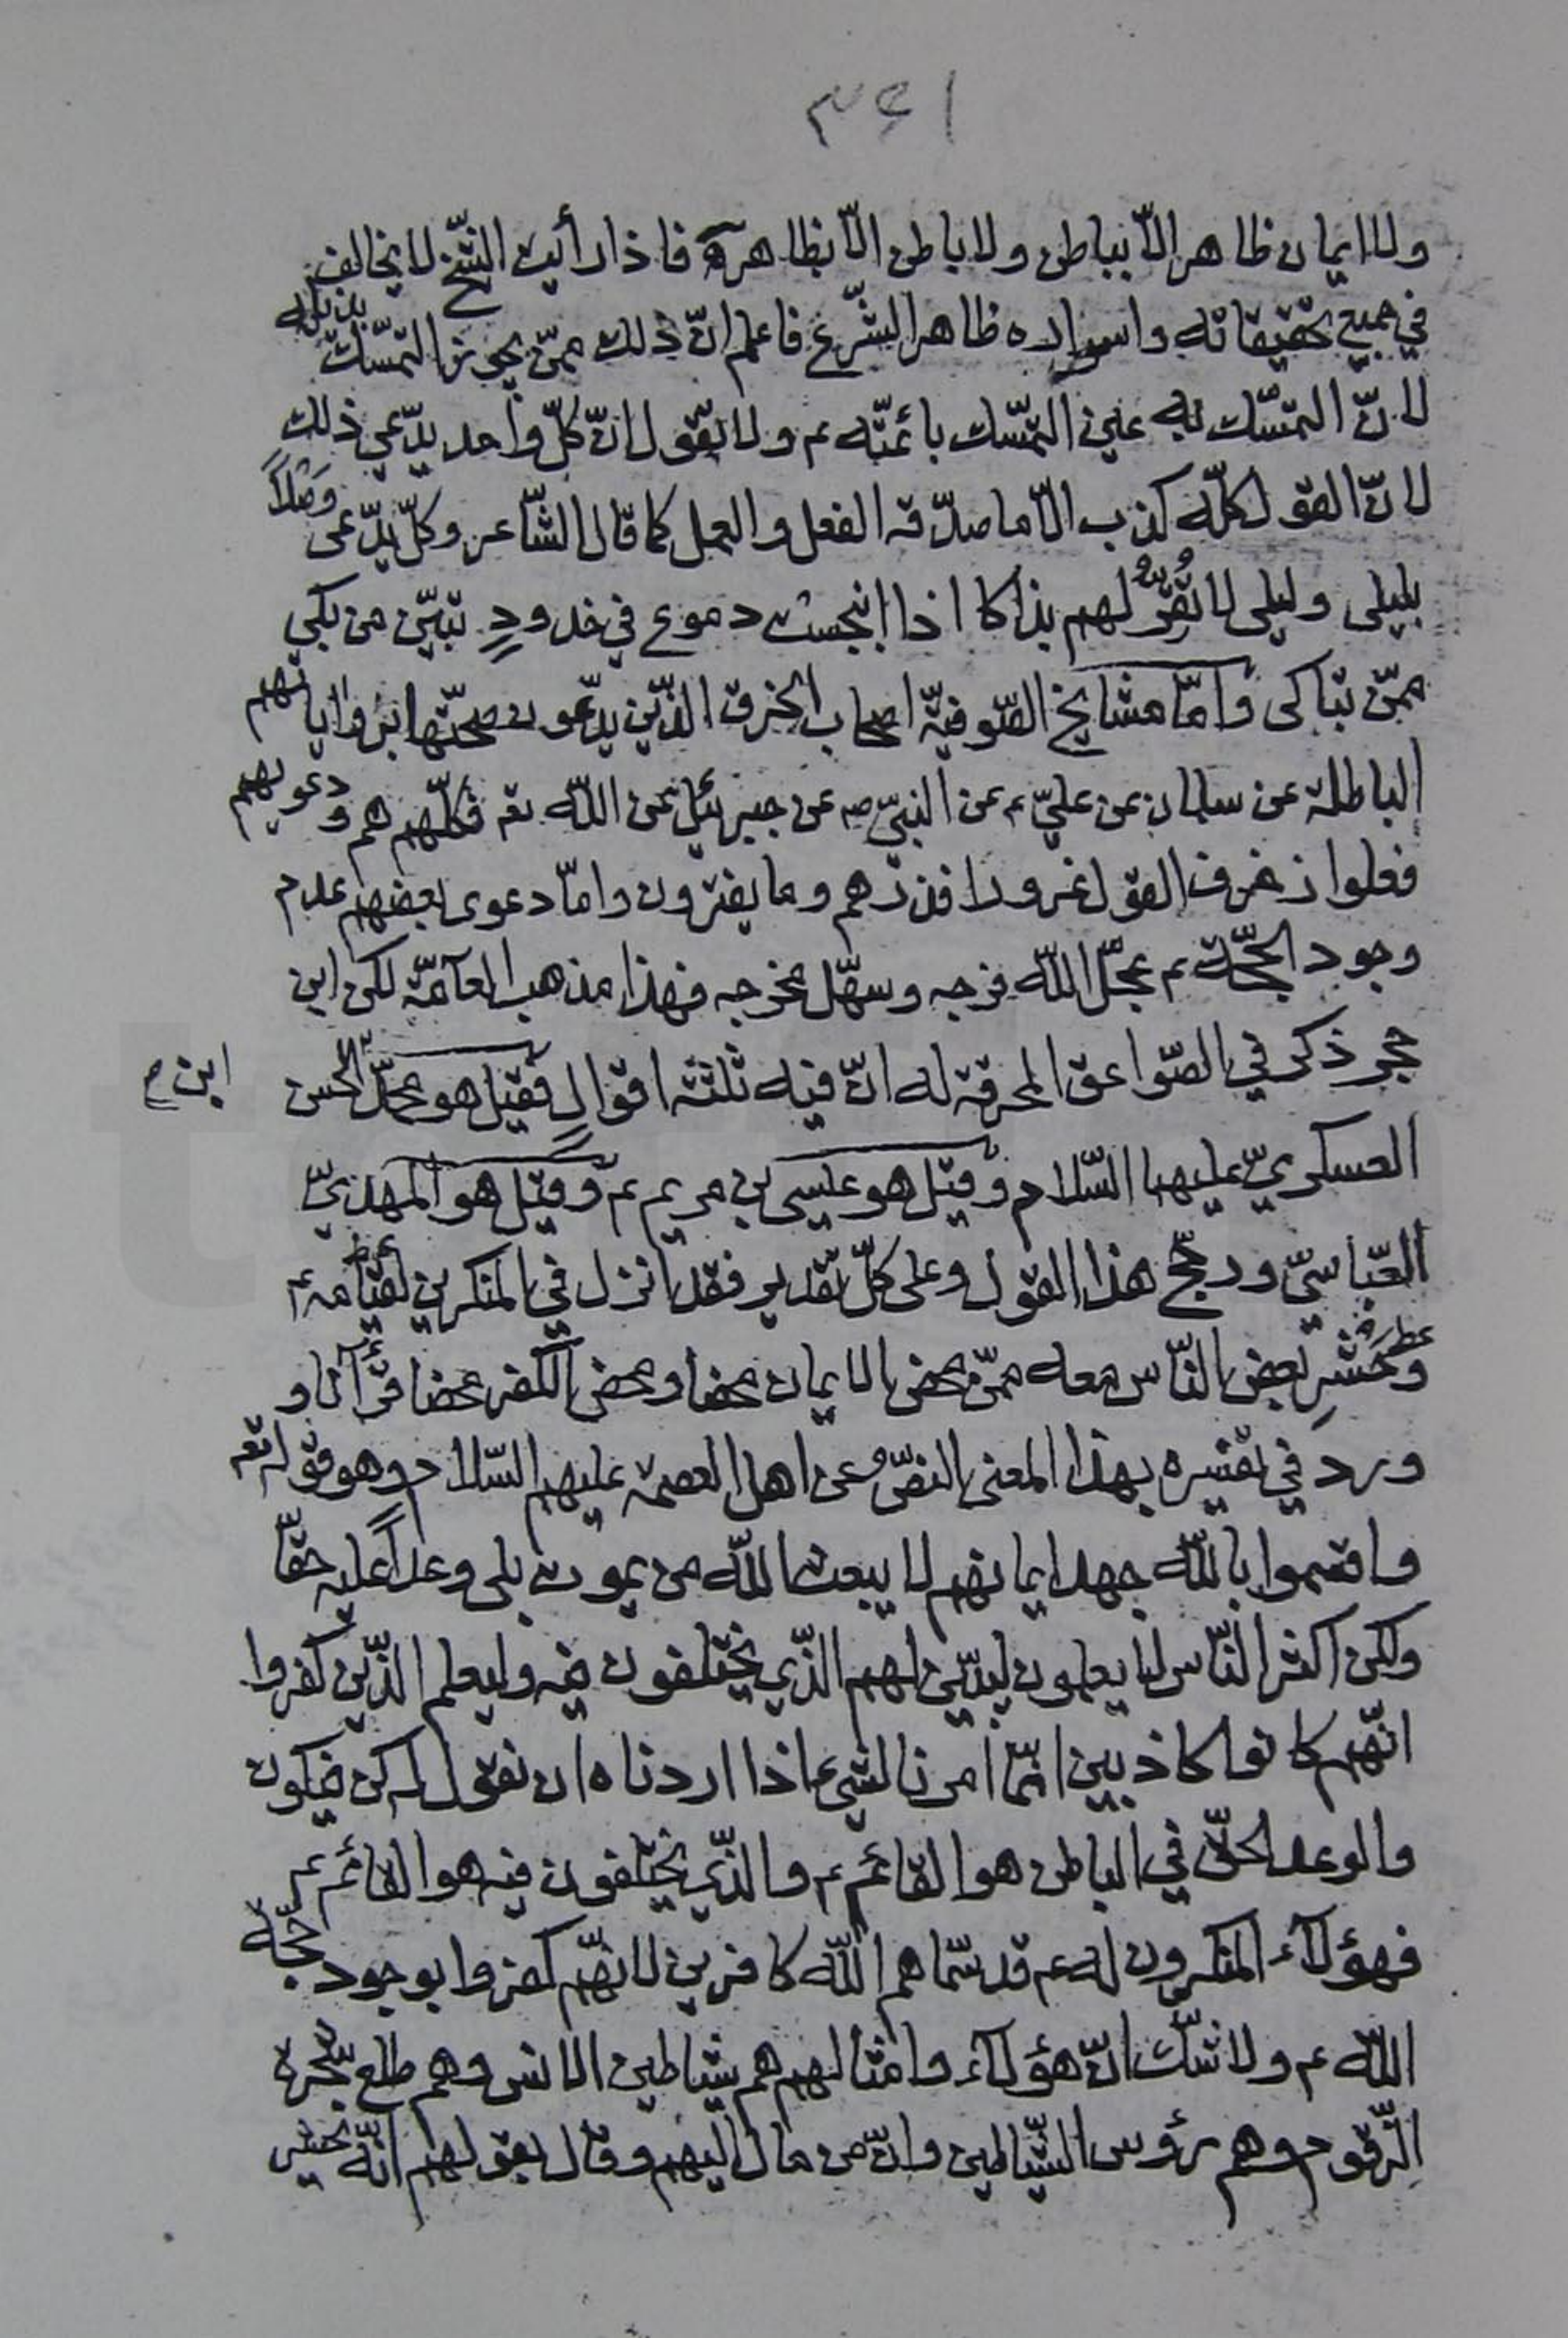 ٣٤١
ولا ايمان ظاهر الّا بباطن ولا باطن الّا بظاهره فاذا رأيت الشّيخ لا يخالف
في جميع تحقيقاته واسراره ظاهر الشّرع فاعلم انّ ذلك ممّن يجوز التمسّك بذيله
لانّ التمسّك به عين التمسّك بائمّته ع ولا تقول انّ كلّ واحد يدّعي ذلك
لانّ القول كلّه كذب الّا ما صدّقه الفعل والعمل كما قال الشّاعر وكلّ يدّعى وَصْلاً
بليلى وليلى لا تُقِرُّ لهم بذاكا اذا انبجست دموع في خدودٍ تبيّن من بكى
ممّن تباكى وامّا مشايخ الصّوفيّة اصحاب الخرق الّذين يدّعون صحّتها برواياتهم
الباطلة عن سلمان عن عليّ ع عن النبيّ ص عن جبرئيل عن اللّه تع فكلّهم هم ودعويهم
فعلوا زخرف القول غرورا فذرهم وما يفترون وامّا دعوى بعضهم عدم
وجود الحجّة ع عجّل اللّه فرجه وسهّل مخرجه فهذا مذهب العآمّة لكن ابن
حجر ذكر في الصّواعق المحرقة له انّ فيه ثلثة اقوالٍ فقيل هو محمّد الحسن
ابن م
العسكريّ عليهما السّلام وقيل هو عيسى بن مريم ع وقيل هو المهديّ
العبّاسيّ ورجّح هذا القول وعلى كلّ تقدير فقد انزل في المنكرين لقيامه ع
وحَشْرِ بعض النّاس معه ممّن محض الايمان محضا ومحض الكفر محضا قرآنا و
ورد في تفسيره بهذا المعنى النصّ عن اهل العصمة عليهم السّلام وهو قوله تع
واقسموا باللّه جهد ايمانهم لا يبعث اللّه من يموت بلى وعداً عليه حقّا
ولكن اكثر النّاس لا يعلمون ليبيّن لهم الّذي يختلفون فيه وليعلم الّذين كفروا
انّهم كانوا كاذبين انّما امرنا لشيء اذا اردناه ان نقول له كن فيكون
والوعد الحقّ في الباطن هو القائم ع والّذي يختلفون فيه هو القائم ع
فهؤلآء المنكرون له ع قد سمّاهم اللّه كافرين لانّهم كفروا بوجود حجّة
اللّه ع ولا شكّ انّ هؤلآء وامثالهم هم شياطين الانس وهم طلع شجرة
الزّقوم وهم رؤس الشّياطين وانّ من مال اليهم وقال بقولهم انّه يحشر